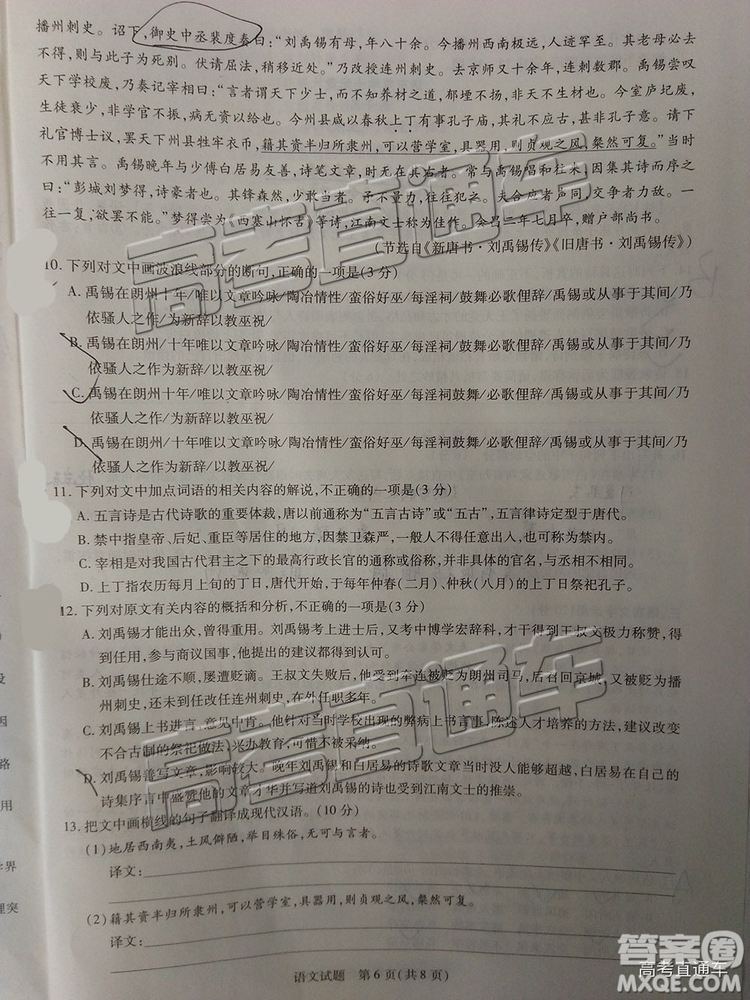 播州刺史。诏下,御史中丞裴度奏曰:“刘禹锡有母,年八十余。今播州西南极远,人迹罕至。其老母必去
不得,则与此子为死别。伏请屈法,稍移近处。”乃改授连州刺史。去京师又十余年,连刺数郡。禹锡尝叹
天下学校废,乃奏记宰相曰:“言者谓天下少士,而不知养材之道,郁堙不扬,非天不生材也。今室庐圮废,
生徒衰少,非学官不振,病无资以给也。今州县咸以春秋上丁有事孔子庙,其礼不应古,甚非孔子意。请下
礼官博士议,罢天下州县牲牢衣币,籍其资半归所隶州,可以营学室,具器用,则贞观之风,粲然可复。”当时
不用其言。禹锡晚年与少傅白居易友善,诗笔文章,时无在其右者。常与禹锡唱和往来,因集其诗而序之
曰:“彭城刘梦得,诗豪者也。其锋森然,少敢当者。予不量力,往往犯之。夫合应者声同,交争者力敌。一
往一复,欲罢不能。”梦得尝为《西塞山怀古》等诗,江南文士称为佳作。会昌二年七月卒,赠户部尚书。
(节选自《新唐书·刘禹锡传》《旧唐书·刘禹锡传》)
10. 下列对文中画波浪线部分的断句,正确的一项是(3 分)
A. 禹锡在朗州十年/唯以文章吟咏/陶冶情性/蛮俗好巫/每淫祠/鼓舞必歌俚辞/禹锡或从事于其间/乃
依骚人之作/为新辞以教巫祝/
B. 禹锡在朗州/十年唯以文章吟咏/陶冶情性/蛮俗好巫/每淫祠/鼓舞必歌俚辞/禹锡或从事于其间/乃
依骚人之作/为新辞/以教巫祝/
C. 禹锡在朗州十年/唯以文章吟咏/陶冶情性/蛮俗好巫/每淫祠鼓舞/必歌俚辞/禹锡或从事于其间/乃
依骚人之作/为新辞以教巫祝/
D. 禹锡在朗州/十年唯以文章吟咏/陶冶情性/蛮俗好巫/每淫祠鼓舞/必歌俚辞/禹锡或从事于其间/乃
依骚人之作/为新辞/以教巫祝/
11. 下列对文中加点词语的相关内容的解说,不正确的一项是(3 分)
A. 五言诗是古代诗歌的重要体裁,唐以前通称为“五言古诗”或“五古”,五言律诗定型于唐代。
B. 禁中指皇帝、后妃、重臣等居住的地方,因禁卫森严,一般人不得进入,也可称为禁内。
C. 宰相是对我国古代君主之下的最高行政长官的通称或俗称,并非具体的官名,与丞相不同。
D. 上丁指农历每月上旬的丁日,唐代开始,于每年仲春(二月)、仲秋(八月)的上丁日祭祀孔子。
12. 下列对原文有关内容的概括和分析,不正确的一项是(3 分)
A. 刘禹锡才能出众,曾得重用。刘禹锡考上进士后,又考中博学宏辞科,才干得到王叔文极力称赞,得
到任用,参与商议国事,他提出的建议都得到认可。
B. 刘禹锡仕途不顺,屡遭贬谪。王叔文失败后,他受到牵连被贬为朗州司马,后召回京城,又被贬为播
州刺史,还未到任改任连州刺史,在外任职多年。
C. 刘禹锡上书进言,意见中肯。他针对当时学校荒废的弊病上书丞相,陈述人才培养的方法,建议改变
不合古制的祭祀做法,兴办教育,可惜不被采纳。
D. 刘禹锡善写文章,影响较大。晚年刘禹锡和白居易的诗歌文章当时没人能够超越,白居易在自己的
诗集序言中盛赞他的文章才华并写道刘禹锡的诗也受到江南文士的推崇。
13. 把文中画横线的句子翻译成现代汉语。(10 分)
(1)地居西南夷,土风僻陋,举目殊俗,无可与言者。
译文:
(2)籍其资半归所隶州,可以营学室,具器用,则贞观之风,粲然可复。
译文:
语文试题 第 6 页(共 8 页)
高考直通车
高考直通车
答案圈
高考直通车
MXQE.COM